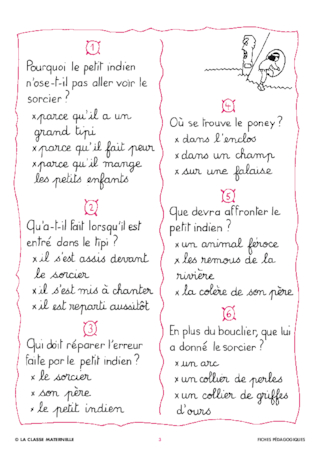 1
Pourquoi le petit indien
n'ose-t-il pas aller voir le
sorcier ?
x parce qu'il a un
grand tipi
x parce qu'il fait peur
x parce qu'il mange
les petits enfants
2
Qu'a-t-il fait lorsqu'il est
entré dans le tipi ?
x il s'est assis devant
le sorcier
x il s'est mis à chanter
x il est reparti aussitôt
3
Qui doit réparer l'erreur
faite par le petit indien ?
x le sorcier
x son père
x le petit indien
4
Où se trouve le poney ?
x dans l'enclos
x dans un champ
x sur une falaise
5
Que devra affronter le
petit indien ?
x un animal féroce
x les remous de la
rivière
x la colère de son père
6
En plus du bouclier, que lui
a donné le sorcier ?
x un arc
x un collier de perles
x un collier de griffes
d'ours
© LA CLASSE MATERNELLE
3
FICHES PÉDAGOGIQUES